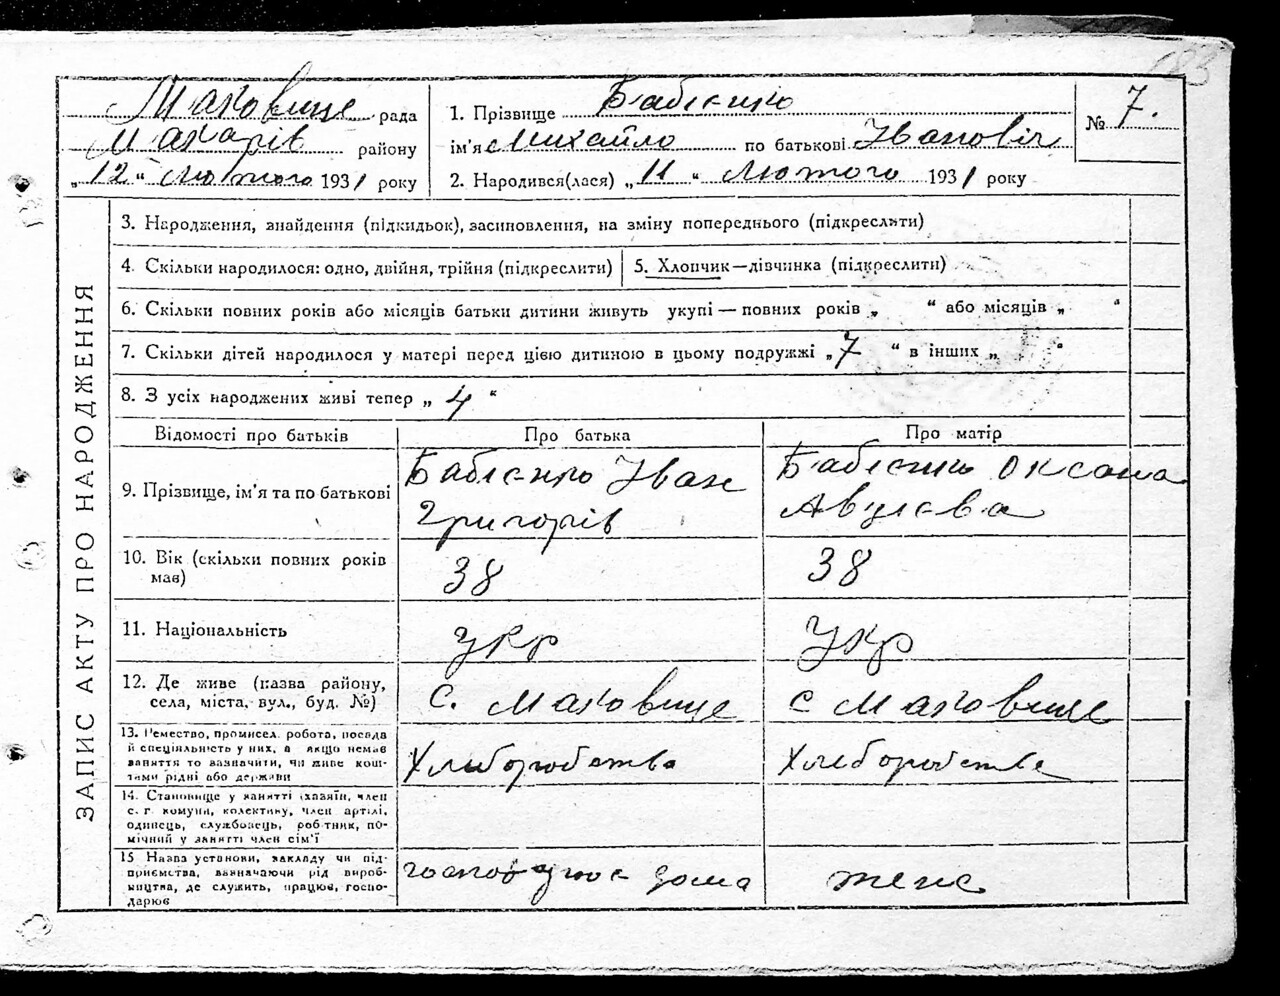 183
Маковище рада
Макарів району
„12“ лютого 1931 року
1. Прізвище Бабієнко
ім'я Михайло по батькові Івановіч
2. Народився(лася) „11“ Лютого 1931 року
№ 7.
ЗАПИС АКТУ ПРО НАРОДЖЕННЯ
3. Народження, знайдення (підкидьок), засиновлення, на зміну попереднього (підкреслити)
4. Скільки народилося: одно, двійня, трійня (підкреслити)
5. Хлопчик—дівчинка (підкреслити)
6. Скільки повних років або місяців батьки дитини живуть укупі — повних років „ “ або місяців „ “
7. Скільки дітей народилося у матері перед цією дитиною в цьому подружжі „7 “ в інших „ “
8. З усіх народжених живі тепер „ 4 “
Відомості про батьків
Про батька
Про матір
9. Прізвище, ім'я та по батькові
Бабієнко Іван
Григорів
Бабієнко Оксана
10. Вік (скільки повних років
мав)
38
38
11. Національність
укр
Укр
12. Де живе (назва району,
села, міста, вул., буд. №)
с. Маковище
с Маковище
13. Ремество, промисел, робота, посада
й спеціяльність у них, а якщо немає
заняття то зазначити, чи живе кош-
тами рідні або держави
Хліборобство
Хліборобство
14. Становище у занятті (хазяїн, член
с. г. комуни, колективу, член артілі,
одинець, службовець, робітник, по-
мічний у занятті член сім'ї
15 Назва установи, закладу чи під-
приємства, зазначаючи рід вироб-
ництва, де служить, працює, госпо-
дарює
господарює дома
теж